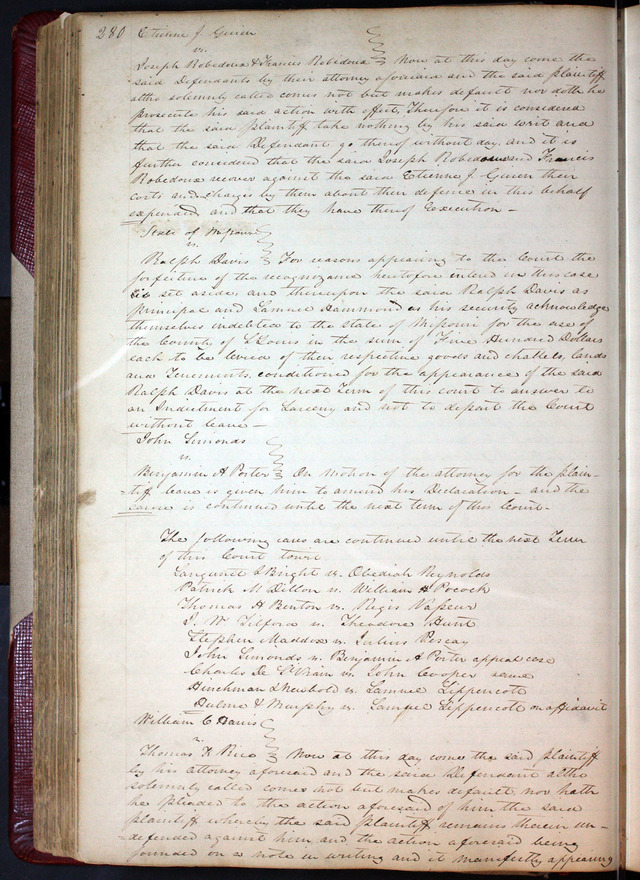 280 Etienne J. Guion
vs.
Joseph Robedoux & Francis Robedoux Now at this day come the
said Defendants by their attorney aforesaid and the said plaintiff
altho solemnly called comes not but makes default nor doth he
prosecute his said action with effect, Therefore it is considered
that the said plaintiff take nothing by his said writ and
that the said Defendant go thereof without day, and it is
further considered that the said Joseph Robedoux and Francis
Robedoux recover against the said Etienne J. Guion their
costs and charges by them about their defence in this behalf
expended and that they have thereof Execution -
State of Missouri
vs.
Ralph Davis For reasons appearing to the Court the
forfeiture of the recognizance heretofore entered in this case
is set aside and thereupon the said Ralph Davis as
principal and Samuel Hammond as his security acknowledge
themselves indebted to the State of Missouri for the use of
the County of St Louis in the sum of Five Hundred Dollars
each to be levied of their respective goods and chattels, lands
and Tenements, conditioned for the appearance of the said
Ralph Davis at the next Term of this court to answer to
an Indictment for Larceny and not to depart the Court
without leave -
John Simonds
vs.
Benjamin A Porter On motion of the attorney for the plain-
-tiff leave is given him to amend his Declaration - and the
same is continued until the next term of this Court -
The following cases are continued until the next Term
of this Court towit
& Bright vs. Obediah Reynolds
Patrick M Dillon vs. William H Pocock
Thomas H Benton vs. Regis Vasseur
J. W Tilford vs. Theodore Hunt
Stephen Maddox vs. Julius Pescay
John Simonds vs. Benjamin A Porter appeal case
Charles De St Vrain vs. John Cooper same
Hinchman & Newbold vs. Samuel Lippencott
Hulme & Murphy vs. Samuel Lippencott on affidavit
William C Davis
vs.
Thomas K Rice Now at this day comes the said plaintiff
by his attorney aforesaid and the said Defendant altho
solemnly called comes not but makes default nor hath
he pleaded to the action aforesaid of him the said
plaintiff whereby the said plaintiff remains therein un-
-defended against him and the action aforesaid being
founded on a note in writing and it manifestly appearing